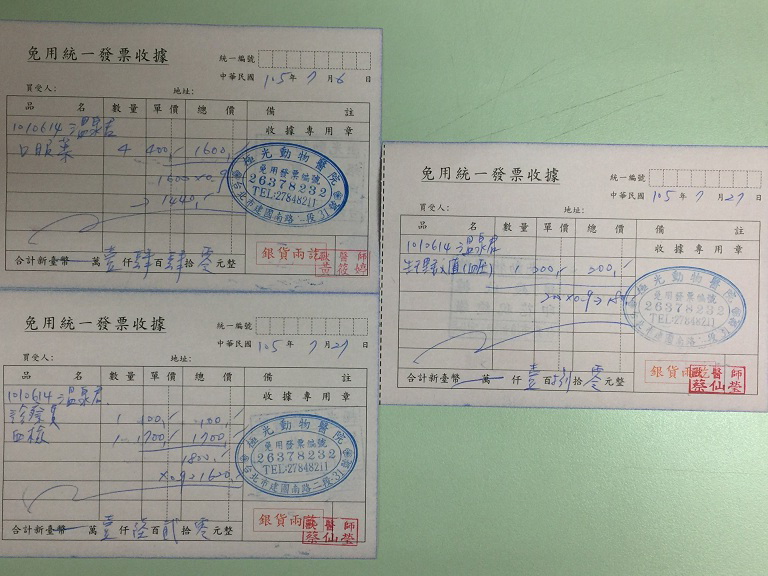 免用統一發票收據
統一編號
中華民國 105年 7月 6日
買受人： 地址：
品名 數量 單價 總價 備註
收據專用章
1010614 溫泉君
口服藥 4 400,- 1600,-
1600×0.9
→1440,-
極光動物醫院
免用發票編號
26378232
TEL:27848211
台北市建國南路一段31號
銀貨兩訖
獸醫師
黃筱婷
合計新臺幣 萬壹仟肆百肆拾零元整
免用統一發票收據
統一編號
中華民國 105年 7月 27日
買受人： 地址：
品名 數量 單價 總價 備註
收據專用章
1010614 溫泉君
生理數值(血壓) 1 200,- 200,-
200×0.9→180
極光動物醫院
免用發票編號
26378232
TEL:27848211
銀貨兩訖
獸醫師
蔡仙瑩
合計新臺幣 萬 仟壹百捌拾零元整
免用統一發票收據
統一編號
中華民國 105年 7月 27日
買受人： 地址：
品名 數量 單價 總價 備註
收據專用章
1010614 溫泉君
診療費 1 100,- 100,-
血檢 1 1700,- 1700,-
1800,-
×0.9=1620,-
極光動物醫院
免用發票編號
26378232
TEL:27848211
台北市建國南路一段31號
銀貨兩訖
獸醫師
蔡仙瑩
合計新臺幣 萬壹仟陸百貳拾零元整